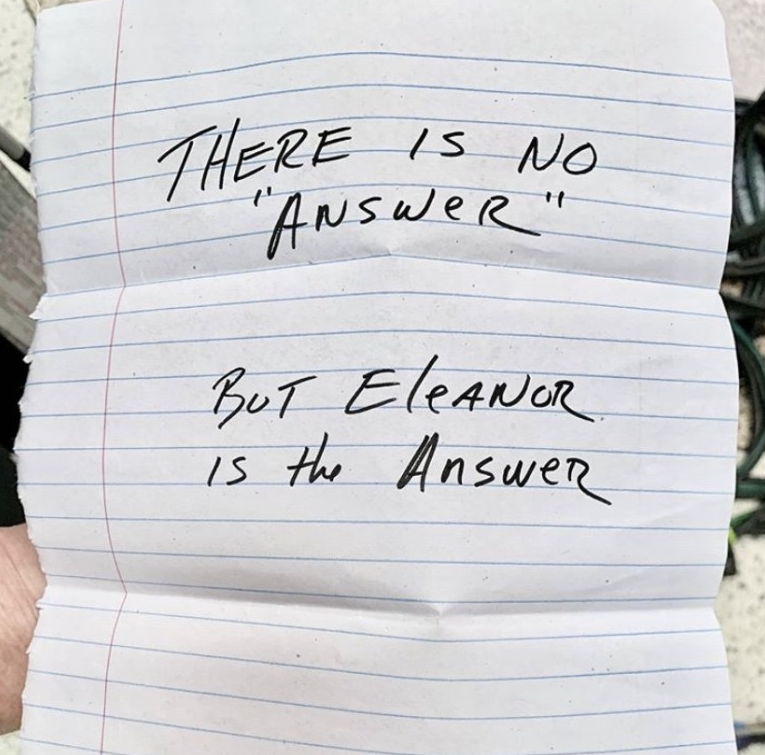 THERE IS NO
"ANSWeR"
BUT EleANOR
IS the ANSWeR